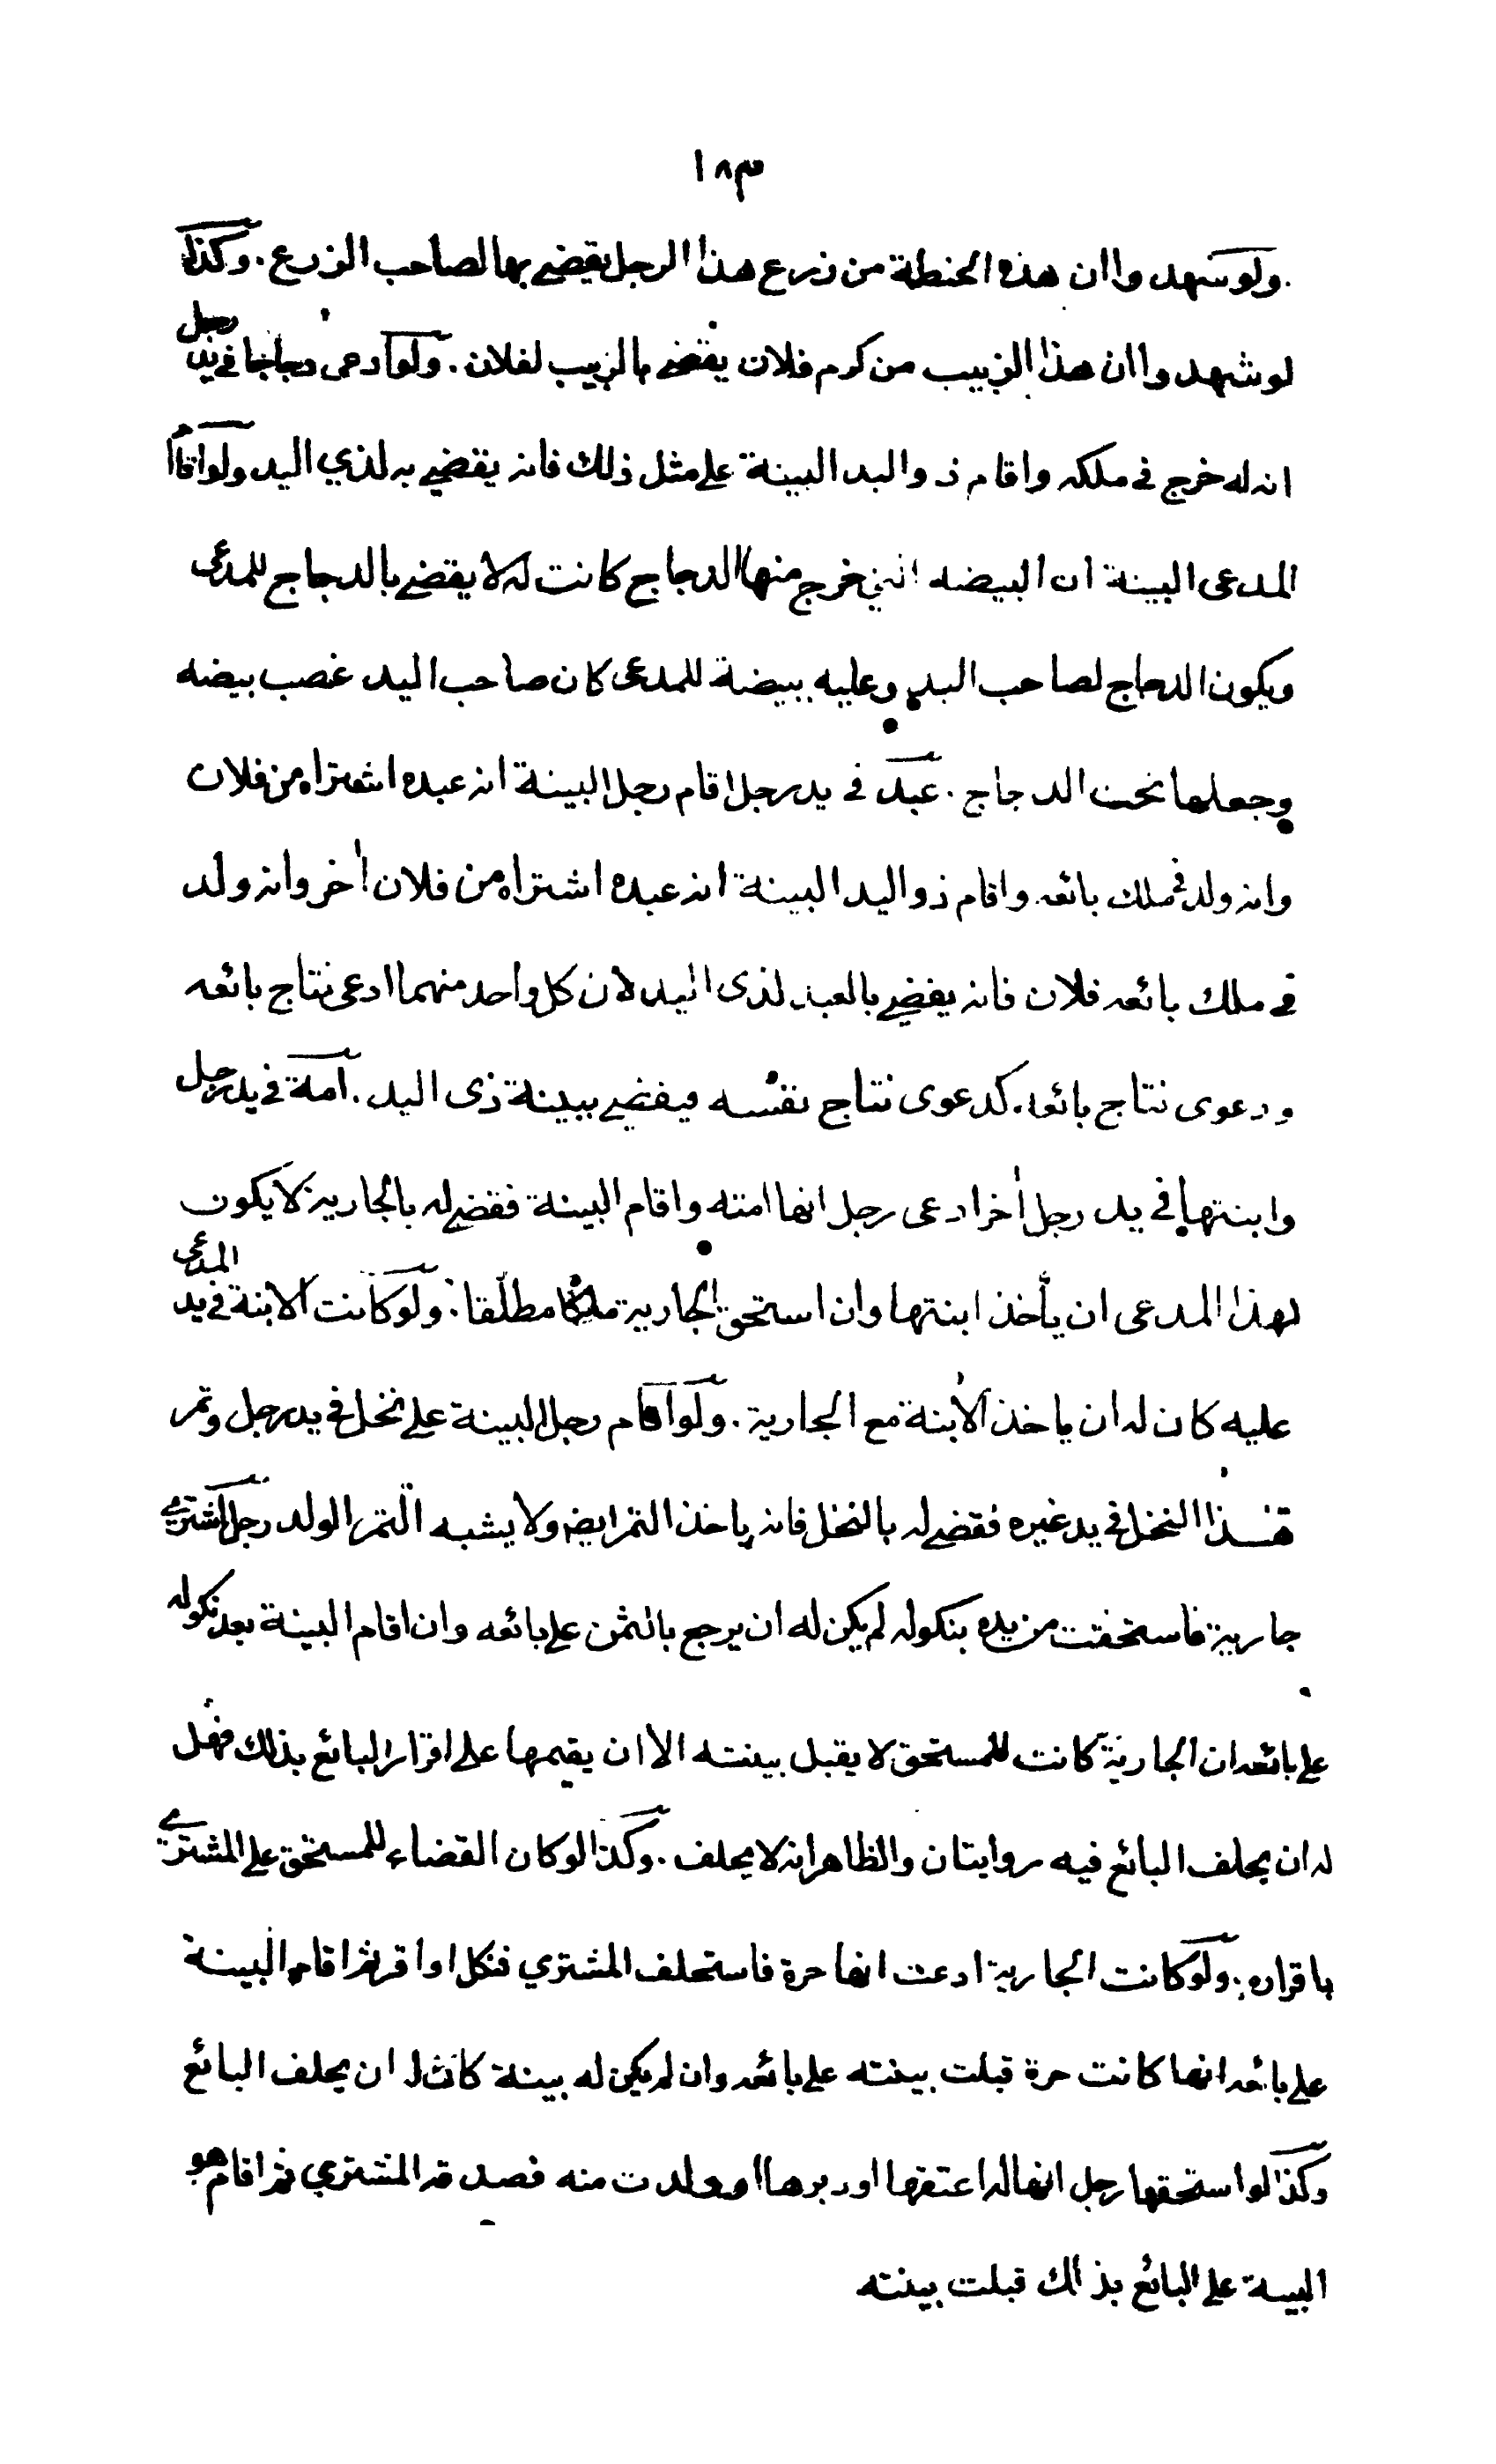 ١٨٣
ولو شهدوا ان هذه الحنطة من زرع هذا الرجل يقضي بها لصاحب الزرع . وكذا
لو شهدوا ان هذا الزبيب من كرم فلان يقضي بالزبيب لفلان . ولو ادعى دجاجا في يد رجل
انه له خرج في ملكه واقام ذو اليد البينة على مثل ذلك فانه يقضي به لذي اليد ولو اقام
المدعى البينة ان البيضه التي خرج منها الدجاج كانت له لا يقضي بالدجاج للمدعى
ويكون الدجاج لصاحب اليد وعليه ببيضة للمدعى كان صاحب اليد غصب بيضه
وجعلها تحت الدجاج . عبد في يد رجل اقام رجل البينة انه عبده اشتراه من فلان
وانه ولد في ملك بائعه واقام ذو اليد البينة انه عبده اشتراه من فلان اٰخر وانه ولد
في ملك بائعه فلان فانه يقضي بالعبد لذى اليد لان كل واحد منهما ادعى نتاج بائعه
ودعوى نتاج بائعه كدعوى نتاج نفسه فيقضي ببينة ذى اليد . امة في يد رجل
وابنتها في يد رجل اٰخر ادعى رجل انها امته واقام البينة فقضي له بالجارية لا يكون
لهذا المدعى ان يأخذ ابنتها وان استحق الجارية ملكا مطلقا . ولو كانت الابنة في يد المدعى
عليه كان له ان ياخذ الابنة مع الجارية . ولو اقام رجل البينة على نخل في يد رجل وتمر
هذا النخل في يد غيره فقضي له بالنخل فانه ياخذ التمر ايضا ولا يشبه التمر الولد رجل اشترى
جارية فاستحقت من يده بنكوله لم يكن له ان يرجع بالثمن على بائعه وان اقام البينة بعد نكوله
على بائعه ان الجارية كانت للمستحق لا يقبل بينته الا ان يقيمها على اقرار البائع بذلك فهل
له ان يحلف البائع فيه روايتان والظاهر انه لا يحلف . وكذا لو كان القضاء للمستحق على المشتري
باقراره . ولو كانت الجارية ادعت انها حرة فاستحلف المشتري فنكل او اقر ثم اقام البينة
على بائعه انها كانت حرة قبلت بينته على بائعه وان لم يكن له بينة كان له ان يحلف البائع
وكذا لو استحقها رجل انها له اعتقها او دبرها او ولدت منه فصدقه المشتري ثم اقام هو
البينة على البائع بذلك قبلت بينته